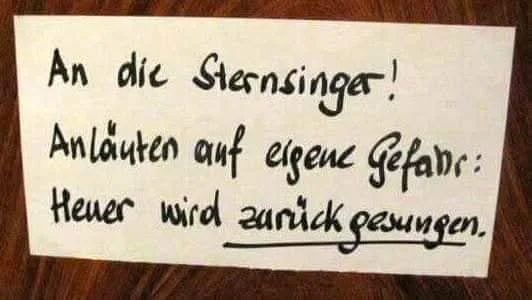 An die Sternsinger!
Anläuten auf eigene Gefahr:
Heuer wird zurückgesungen.